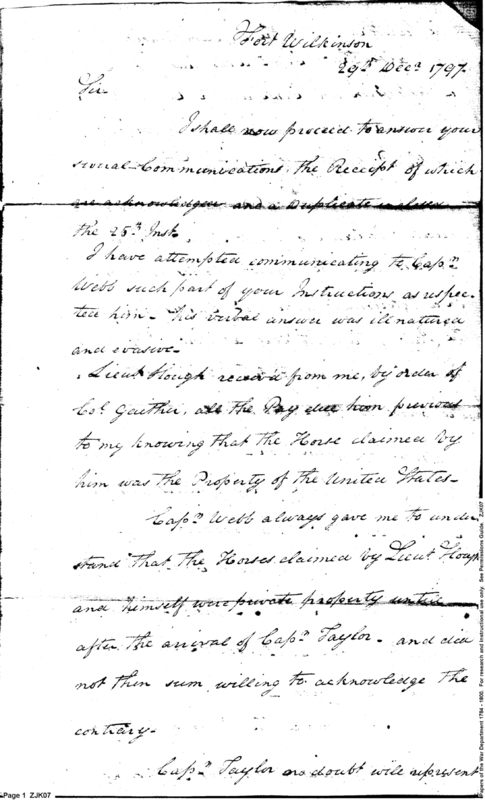 Fort Wilkinson
29th Decr 1797.
Sir
I shall now proceed to answer your
several Communications the Receipt of which
are acknowledged and a Duplicate inclosed
the 25th Inst.
I have attempted communicating to Capn
Webb such part of your Instructions as respec-
ted him - his verbal answer was ill natured
and evasive -
Lieut Hough receivd from me, by order of
Col. Gaither, all the Pay due him previous
to my knowing that the Horse claimed by
him was the Property of the United States -
Capn Webb always gave me to under
stand that the Horses claimed by Lieut Hough
and himself were private property until
after the arrival of Capn Taylor - and did
not then seem willing to acknowledge the
contrary -
Capn Taylor no doubt will represent
Page 1 ZJK07
Papers of the War Department 1784 - 1800. For research and instructional use only. See Permissions Guide. ZJK07